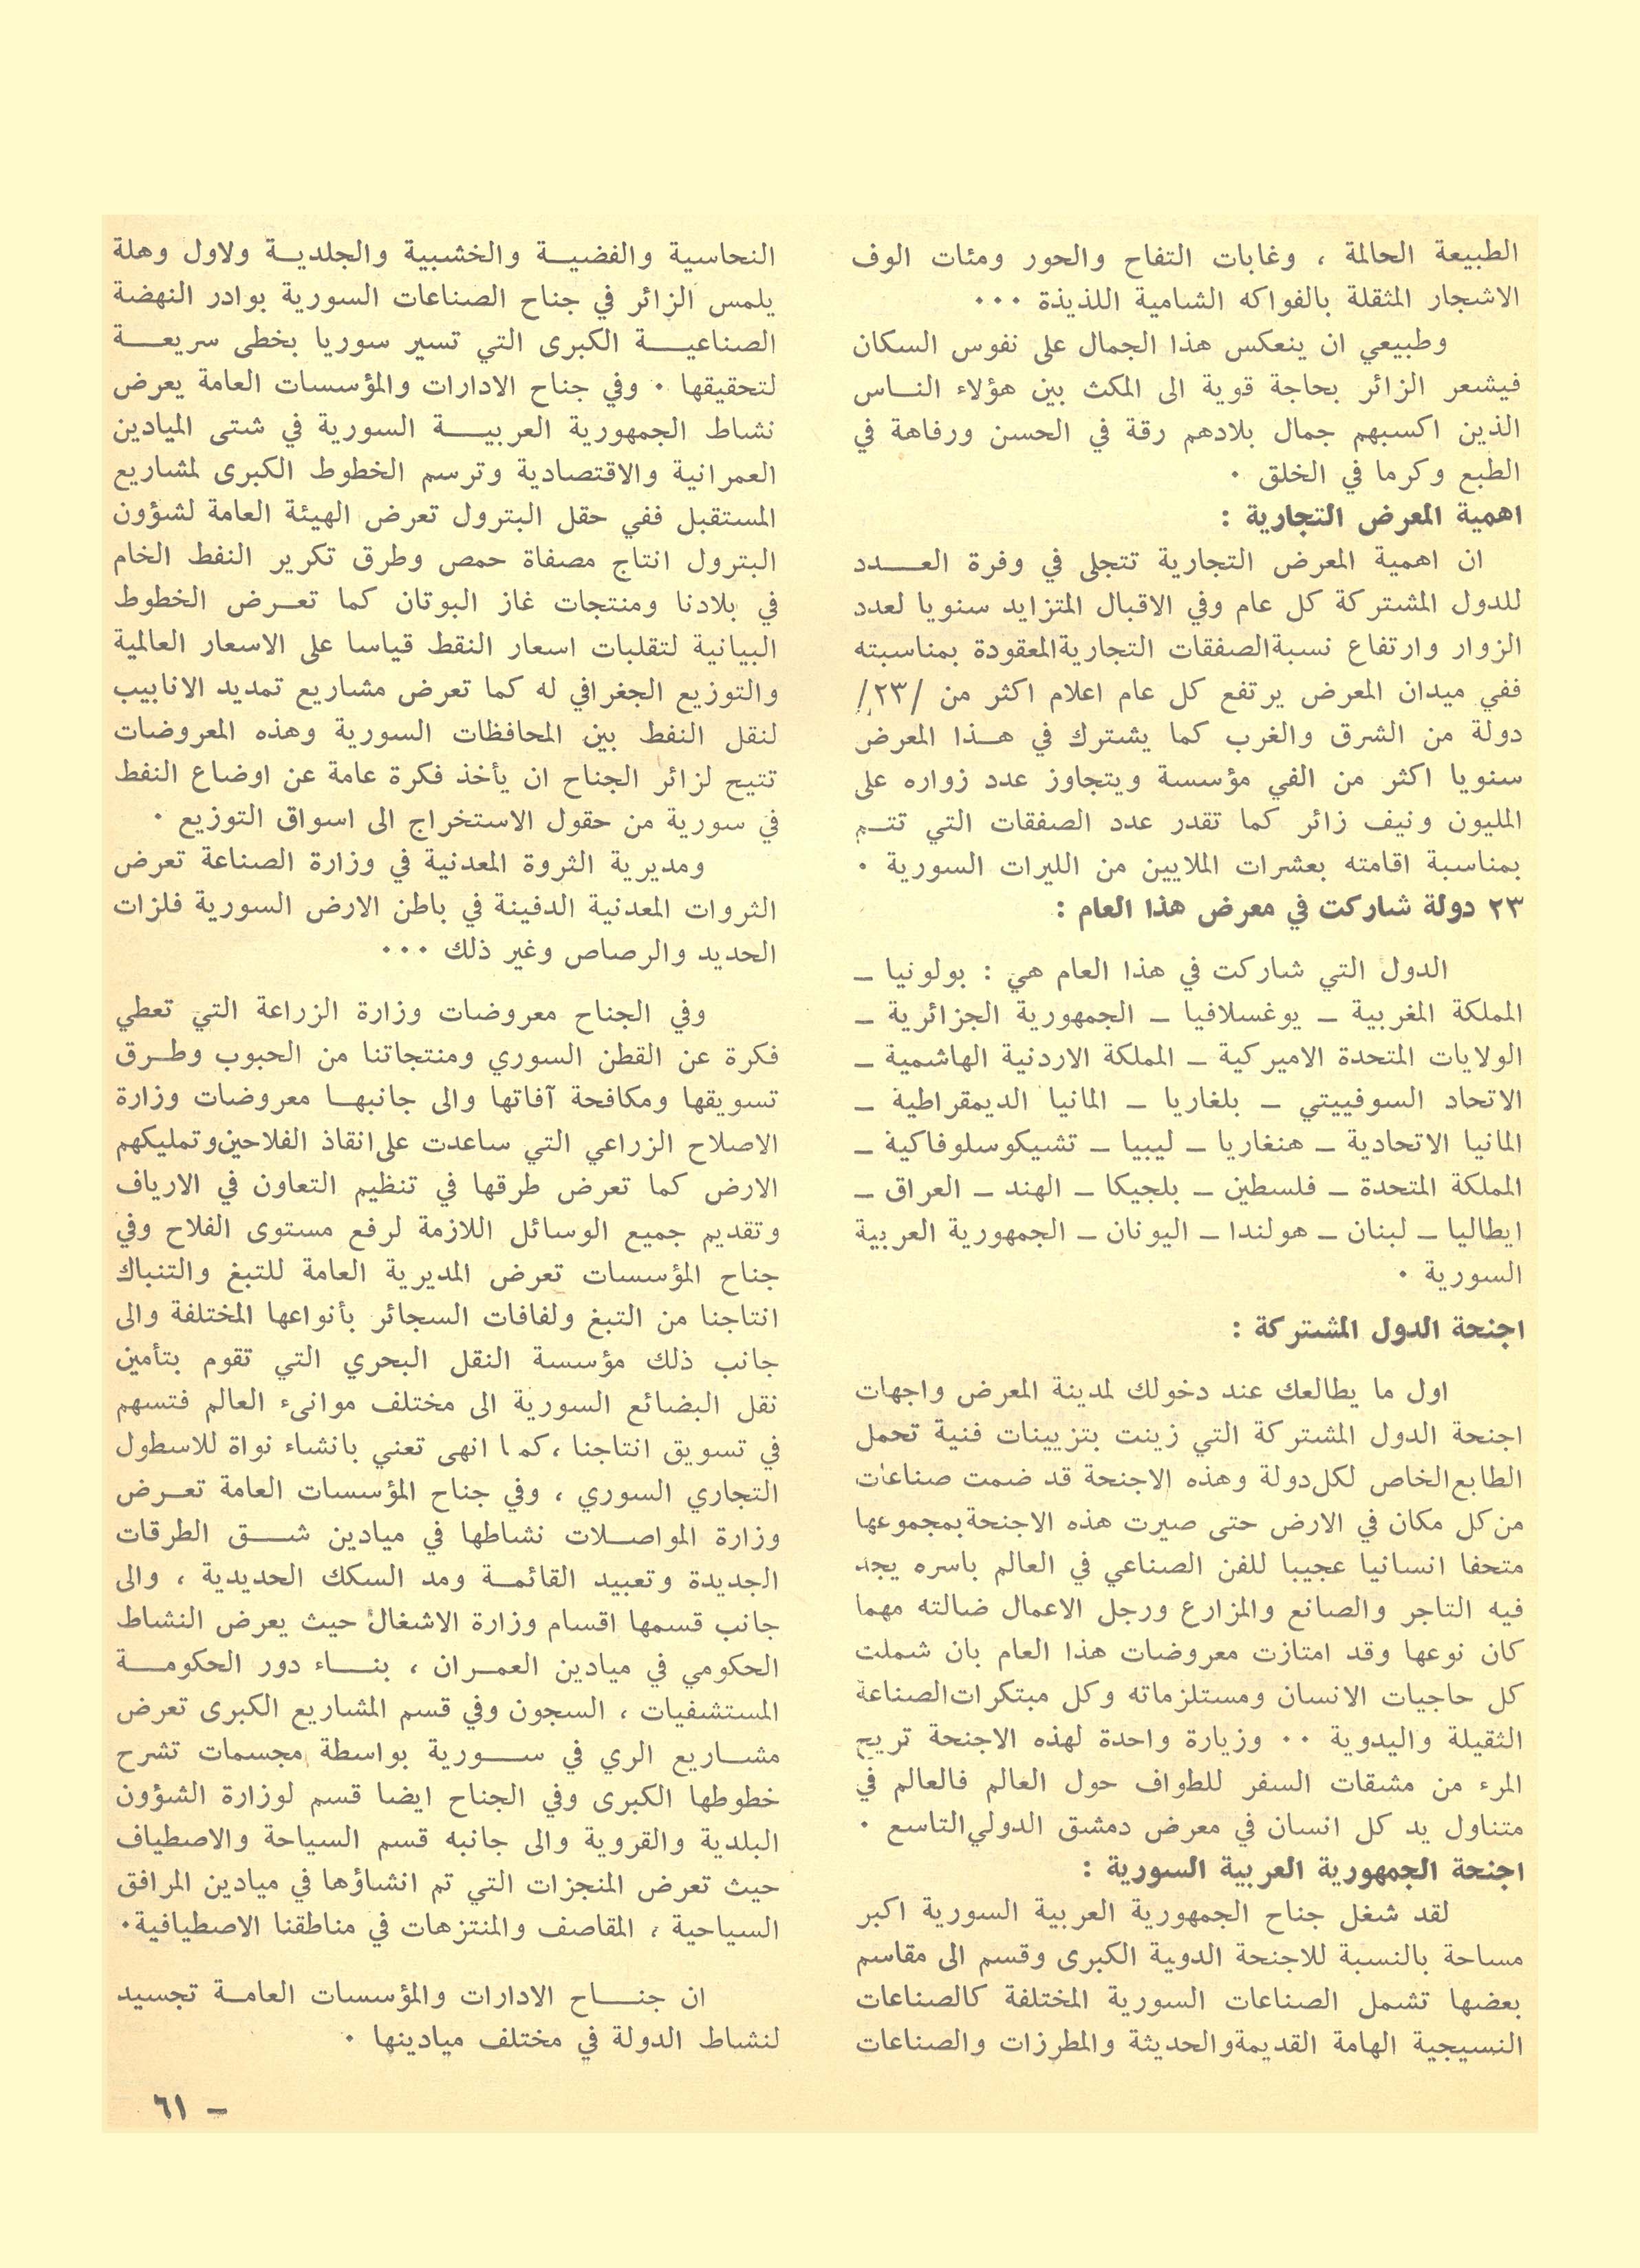 الطبيعة الحالمة ، وغابات التفاح والحور ومئات الوف
الاشجار المثقلة بالفواكه الشامية اللذيذة ٠٠٠
وطبيعي ان ينعكس هذا الجمال على نفوس السكان
فيشعر الزائر بحاجة قوية الى المكث بين هؤلاء النـاس
الذين اكسبهم جمال بلادهم رقة في الحسن ورفاهة في
الطبع وكرما في الخلق ٠
اهمية المعرض التجارية :
ان اهمية المعرض التجارية تتجلى في وفرة العـــدد
للدول المشتركة كل عام وفي الاقبال المتزايد سنويا لعدد
الزوار وارتفاع نسبة الصفقات التجارية المعقودة بمناسبته
ففي ميدان المعرض يرتفع كل عام اعلام اكثر من /٢٣/
دولة من الشرق والغرب كما يشترك في هـذا المعرض
سنويا اكثر من الفي مؤسسة ويتجاوز عدد زواره على
المليون ونيف زائر كما تقدر عدد الصفقات التي تتـم
بمناسبة اقامته بعشرات الملايين من الليرات السورية ٠
٢٣ دولة شاركت في معرض هذا العام :
الدول التي شاركت في هذا العام هي : بولونيا –
المملكة المغربية – يوغسلافيا – الجمهورية الجزائرية –
الولايات المتحدة الاميركية – المملكة الاردنية الهاشمية –
الاتحاد السوفييتي – بلغاريا – المانيا الديمقراطية –
المانيا الاتحادية – هنغاريا – ليبيا – تشيكوسلوفاكية –
المملكة المتحدة – فلسطين – بلجيكا – الهند – العراق –
ايطاليا – لبنان – هولندا – اليونان – الجمهورية العربية
السورية ٠
اجنحة الدول المشتركة :
اول ما يطالعك عند دخولك لمدينة المعرض واجهات
اجنحة الدول المشتركة التي زينت بتزيينات فنية تحمل
الطابع الخاص لكل دولة وهذه الاجنحة قد ضمت صناعات
من كل مكان في الارض حتى صيرت هذه الاجنحة بمجموعها
متحفا انسانيا عجيبا للفن الصناعي في العالم باسره يجد
فيه التاجر والصانع والمزارع ورجل الاعمال ضالته مهما
كان نوعها وقد امتازت معروضات هذا العام بان شملت
كل حاجيات الانسان ومستلزماته وكل مبتكرات الصناعة
الثقيلة واليدوية ٠٠ وزيارة واحدة لهذه الاجنحة تريح
المرء من مشقات السفر للطواف حول العالم فالعالم في
متناول يد كل انسان في معرض دمشق الدولي التاسع ٠
اجنحة الجمهورية العربية السورية :
لقد شغل جناح الجمهورية العربية السورية اكبر
مساحة بالنسبة للاجنحة الدوية الكبرى وقسم الى مقاسم
بعضها تشمل الصناعات السورية المختلفة كالصناعات
النسيجية الهامة القديمة والحديثة والمطرزات والصناعات
النحاسية والفضيـة والخشبية والجلديـة ولاول وهلة
يلمس الزائر في جناح الصناعات السورية بوادر النهضة
الصناعيـــة الكبرى التي تسير سوريا بخطى سريعـــة
لتحقيقها ٠ وفي جناح الادارات والمؤسسات العامة يعرض
نشاط الجمهورية العربيـــة السورية في شتى الميادين
العمرانية والاقتصادية وترسم الخطوط الكبرى لمشاريع
المستقبل ففي حقل البترول تعرض الهيئة العامة لشؤون
البترول انتاج مصفاة حمص وطرق تكرير النفط الخام
في بلادنا ومنتجات غاز البوتان كما تعـرض الخطوط
البيانية لتقلبات اسعار النقط قياسا على الاسعار العالمية
والتوزيع الجغرافي له كما تعرض مشاريع تمديد الانابيب
لنقل النفط بين المحافظات السورية وهذه المعروضات
تتيح لزائر الجناح ان يأخذ فكرة عامة عن اوضاع النفط
في سورية من حقول الاستخراج الى اسواق التوزيع ٠
ومديرية الثروة المعدنية في وزارة الصناعة تعرض
الثروات المعدنية الدفينة في باطن الارض السورية فلزات
الحديد والرصاص وغير ذلك ٠٠٠
وفي الجناح معروضات وزارة الزراعة التي تعطي
فكرة عن القطن السوري ومنتجاتنا من الحبوب وطـرق
تسويقها ومكافحة آفاتها والى جانبهـا معروضات وزارة
الاصلاح الزراعي التي ساعدت على انقاذ الفلاحين وتمليكهم
الارض كما تعرض طرقها في تنظيم التعاون في الارياف
وتقديم جميع الوسائل اللازمة لرفع مستوى الفلاح وفي
جناح المؤسسات تعرض المديرية العامة للتبغ والتنباك
انتاجنا من التبغ ولفافات السجائر بأنواعها المختلفة والى
جانب ذلك مؤسسة النقل البحري التي تقوم بتأمين
نقل البضائع السورية الى مختلف موانىء العالم فتسهم
في تسويق انتاجنا ، كما انهى تعني بانشاء نواة للاسطول
التجاري السوري ، وفي جناح المؤسسات العامة تعـرض
وزارة المواصـلات نشاطها في ميادين شـــق الطرقات
الجديدة وتعبيد القائمـة ومد السكك الحديدية ، والى
جانب قسمها اقسام وزارة الاشغال حيث يعرض النشاط
الحكومي في ميادين العمـران ، بنــاء دور الحكومـــة
المستشفيات ، السجون وفي قسم المشاريع الكبرى تعرض
مشـاريع الري في ســـورية بواسطة مجسمات تشرح
خطوطها الكبرى وفي الجناح ايضا قسم لوزارة الشؤون
البلدية والقروية والى جانبه قسم السياحة والاصطياف
حيث تعرض المنجزات التي تم انشاؤها في ميادين المرافق
السياحية ، المقاصف والمنتزهات في مناطقنا الاصطيافية٠
ان جنـــاح الادارات والمؤسسات العامـة تجسيد
لنشاط الدولة في مختلف ميادينها ٠
– ٦١